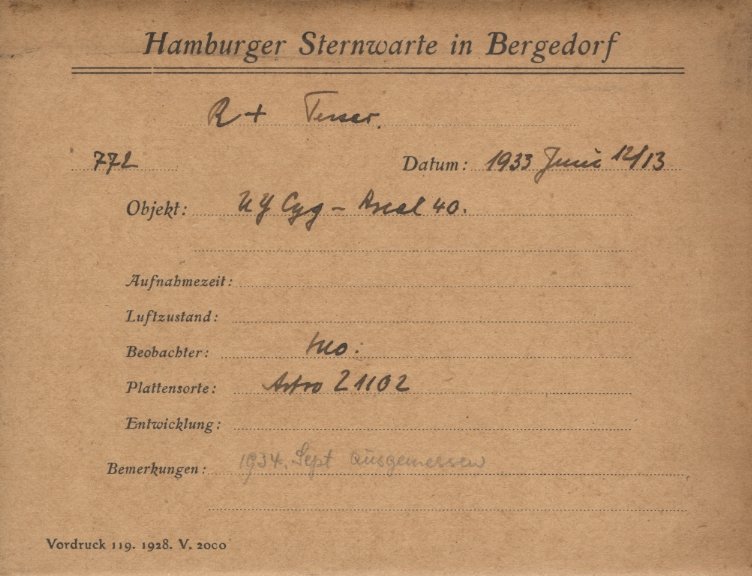 Hamburger Sternwarte in Bergedorf
R + Tessar.
772 Datum: 1933 Juni 12/13
Objekt: UY Cyg – Areal 40.
Aufnahmezeit:
Luftzustand:
Beobachter:
Plattensorte: Astro Z 1102
Entwicklung:
Bemerkungen: 1934. Sept ausgemessen
Vordruck 119. 1928. V. 2000